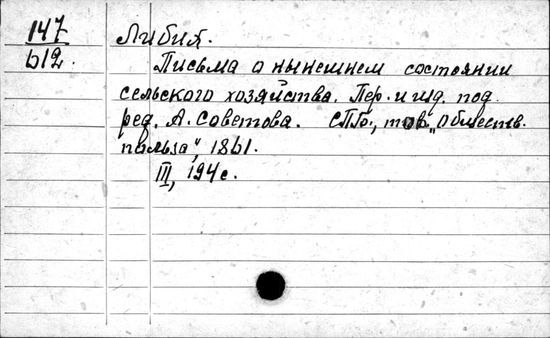 147
612.
Либия.
Письма о нынешнем состоянии
сельского хозяйства. Пер. и изд. под
ред. А. Советова. СПб., тов. "Обществ.
польза", 1861.
III, 194 с.